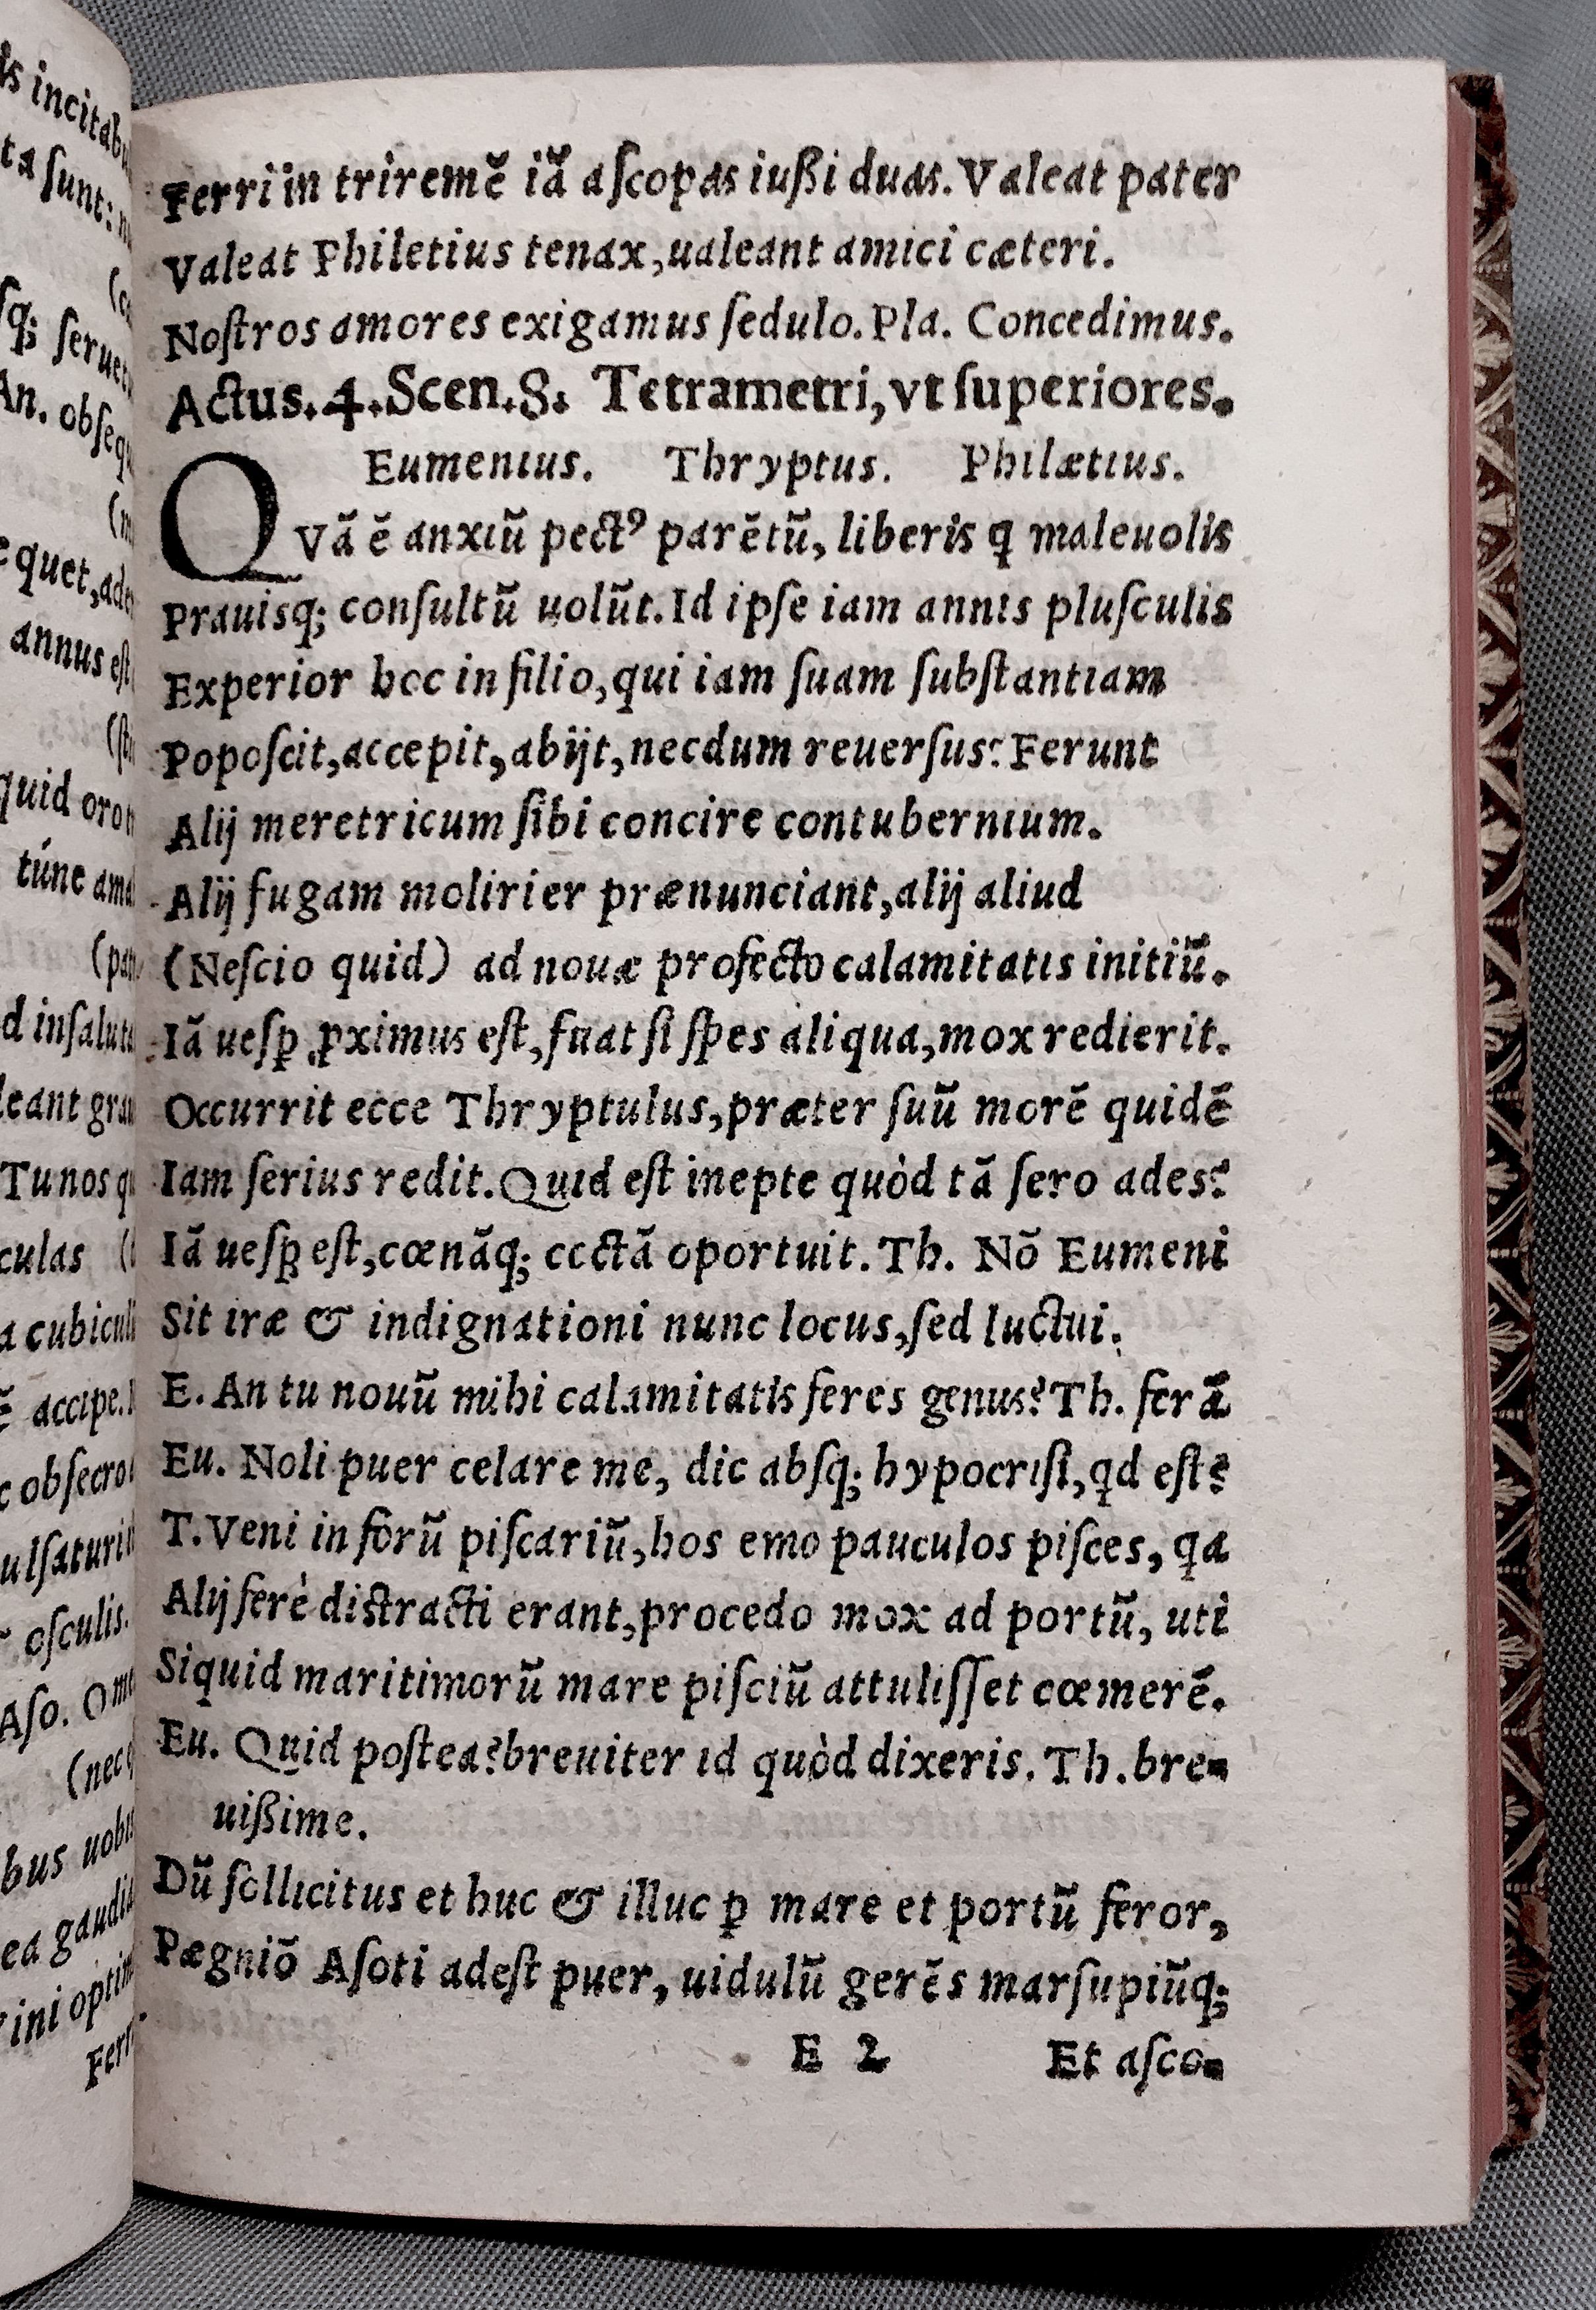 is incitab
ta ſunt:
ſq; ſeruet
An. obſequ
quet, ade
annus eſt
quid orot
túne ama
(pat
d inſaluta
leant gra
Tu nos qu
culas
a cubiculi
accipe.
c obſecro
ulſaturit
oſculis.
Aſo. Om
(nec
bus uobis
ea gaudia
ini optim
Ferri
Ferri in triremē iā aſcopas iußi duas. Valeat pater
Valeat Philetius tenax, ualeant amici cæteri.
Noſtros amores exigamus ſedulo. Pla. Concedimus.
Actus. 4. Scen. 8. Tetrametri, vt ſuperiores.
Eumenius. Thryptus. Philætius.
QVā ē anxiū pectꝰ parētū, liberis q̨ maleuolis
Prauisq; conſultū uolūt. Id ipſe iam annis pluſculis
Experior hoc in filio, qui iam ſuam ſubſtantiam
Popoſcit, accepit, abijt, necdum reuerſus? Ferunt
Alij meretricum ſibi concire contubernium.
Alij fugam molirier prænunciant, alij aliud
(Neſcio quid) ad nouæ profecto calamitatis initiū.
Iā ueſꝑ ꝓximus eſt, fuat ſi ſpes aliqua, mox redierit.
Occurrit ecce Thryptulus, præter ſuū morē quidē
Iam ſerius redit. Quid eſt inepte quòd tā ſero ades?
Iā ueſꝑ eſt, cœnāq; coctā oportuit. Th. Nō Eumeni
Sit iræ & indignationi nunc locus, ſed luctui.
E. An tu nouū mihi calamitatis feres genus? Th. ferā
Eu. Noli puer celare me, dic abſq; hypocriſi, qd eſt?
T. Veni in forū piſcariū, hos emo pauculos piſces, qa
Alij ferè distracti erant, procedo mox ad portū, uti
Siquid maritimorū mare piſciū attuliſſet coemerē.
Eu. Quid poſtea? breuiter id quòd dixeris. Th. bre-
uißime.
Dū ſollicitus et huc & illuc ꝑ mare et portū feror,
Pægniō Aſoti adeſt puer, uidulū gerēs marſupiūq;
E 2 Et aſco-